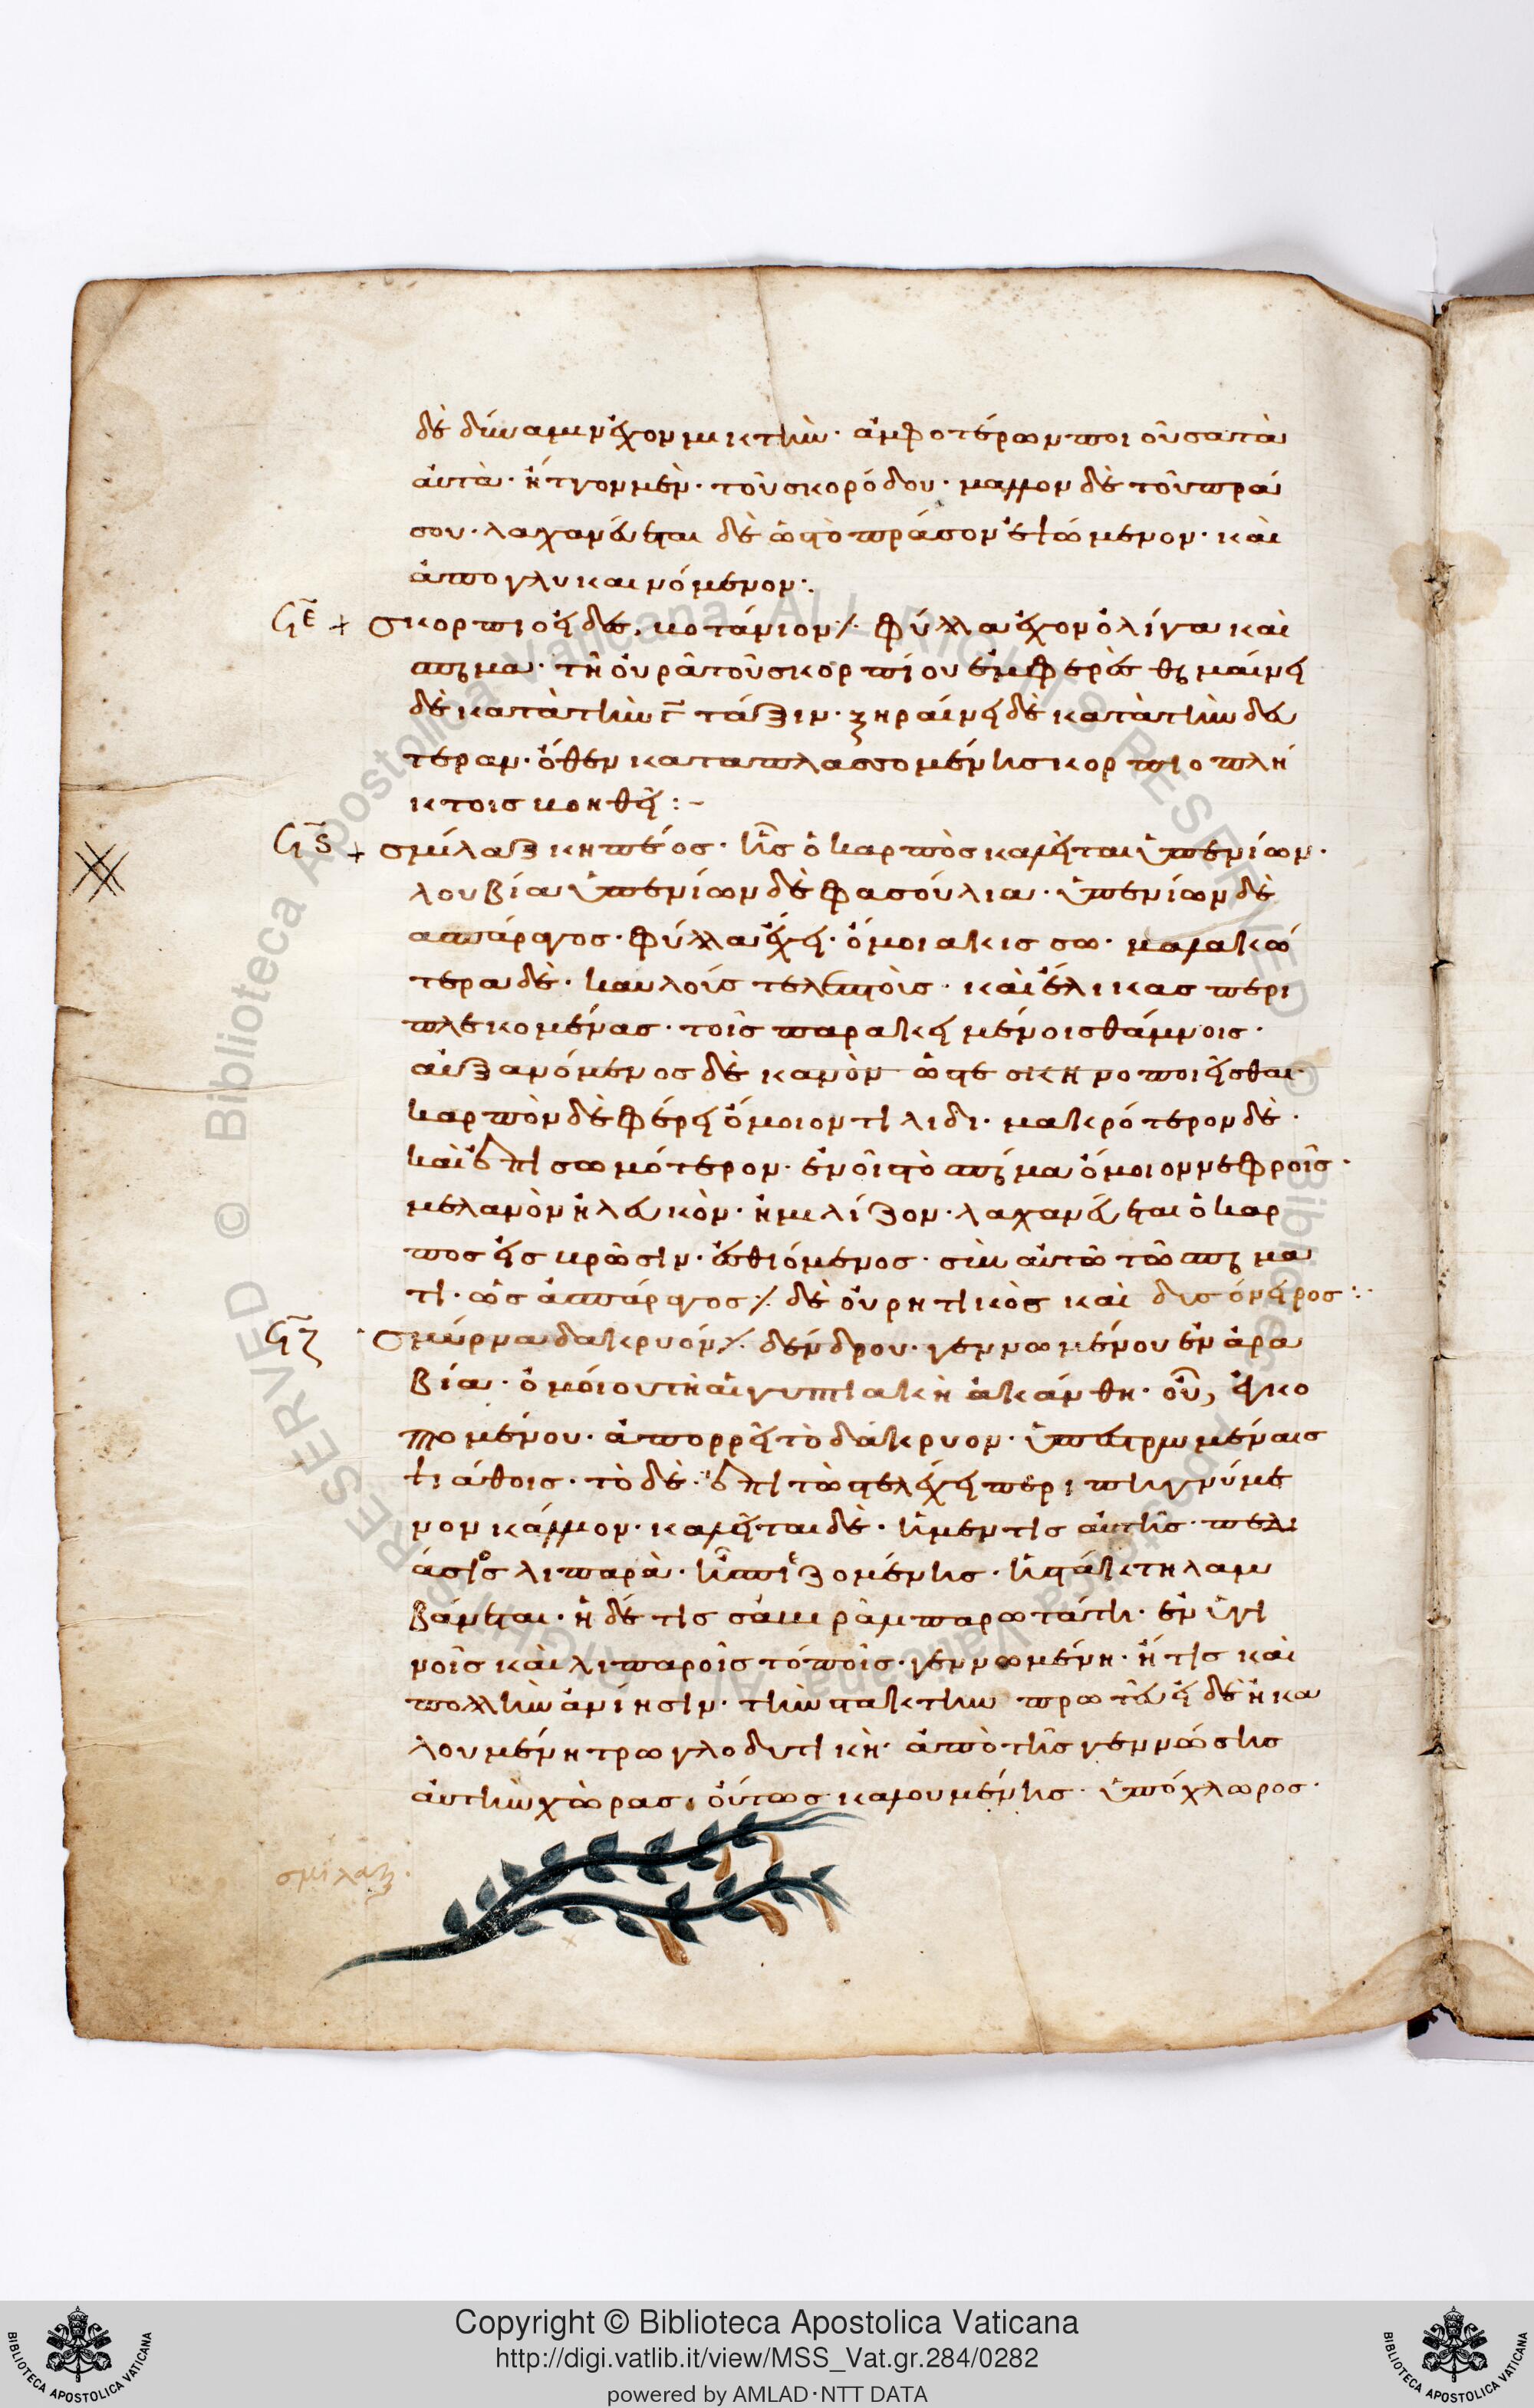 δὲ δύναμιν ἔχον μικτὴν· ἀμφοτέρων ποιοῦσα τὰ
αὐτὰ· ἧττον μὲν· τοῦ σκορόδου· μᾶλλον δὲ τοῦ πρά
σου· λαχανεύεται δὲ ὡς τὸ πράσον ἑψώμενον· καὶ
ἀπογλυκαινόμενον:
ϟε + σκορπιοειδὲς, βοτάνιον ⁒ φύλλα ἔχον ὀλίγα καὶ
σπέρμα· τῆ οὐρᾶ τοῦ σκορπίου ἐμφερὲς θερμαίνει
δὲ κατὰ τὴν γ̅ τάξιν· ξηραίνει δὲ κατὰ τὴν δευ
τέραν· ὅθεν καταπλασσομένης σκορπιοπλή
κτοις βοηθεῖ:-
ϟϛ + σμίλαξ κηπέος· ἧς ὁ καρπὸς καλεῖται ὑπ ἐνίων·
λουβία ὑπ ἐνίων δὲ φασούλια· ὑπ ἐνίων δὲ
ασπάραγος· φύλλα ἔχει· ὅμοια κισσῶ· μαλακώ
τερα δὲ· καυλοὺς τε λεπτοὺς· καὶ ἕλικας περι
πλεκομένας· τοῖς παρακειμένοις θάμνοις·
αὐξανόμενος δὲ ἱκανὸν ὥστε σκηνοποιεῖσθαι·
καρπὸν δὲ φέρει ὅμοιον τίλιδι· μακρότερον δὲ·
καὶ εὐπισωμότερον· ἐν οἷς τὸ σπέρμα ὅμοιον νεφροῖς·
μελανὸν ἢ λευκὸν· ἢ μιλίζον· λαχανεύεται ὁ καρ
πος εἰς βρῶσιν· ἐσθιόμενος· σὺν αὐτῶ τῶ σπέρμα
τι· ὡς ἀσπάραγος ⁒ δὲ οὐρητικὸς καὶ δυσόνειρος:·
ϟζ Σμύρνα δάκρυόν ⁒ δένδρου· γεννωμένου ἐν ἀρα
βία· ὁμοίου τῆ αἰγυπτιακῆ ἀκάνθη· οὗ, ἐγκο
πτομένου· ἀπορρεῖ τὸ δάκρυον· ὑπεστρωμέναις
ψιάθοις· τὸ δὲ· ἐπὶ τῶ στελέχει περιπηγνύμε
νον κάλλιον· καλεῖται δὲ· ἡ μέν τις αὐτῆς· πεδι
άσιος λιπαρὰ· ἧς πιεζομένης· ἡ στακτὴ λαμ
βάνεται· ἡ δέ τις γαβιρὰ λιπαρωτάτη· ἐν ὑγι
νοῖς καὶ λιπαροῖς τόποις· γεννωμένη· ἥτις καὶ
πολλὴν ἀνίησιν· τὴν στακτὴν πρωτεύει δὲ ἡ κα
λουμένη τρωγλοδυτικὴ· ἀπὸ τῆς γεννώσης
αὐτὴν χώρας, οὕτως καλουμένης· ὑπόχλωρος·
σμίλαξ.
Copyright © Biblioteca Apostolica Vaticana
http://digi.vatlib.it/view/MSS_Vat.gr.284/0282
powered by AMLAD·NTT DATA
BIBLIOTECA APOSTOLICA VATICANA
BIBLIOTECA APOSTOLICA VATICANA
© Biblioteca Apostolica Vaticana ALL RIGHTS RESERVED
© Biblioteca Apostolica Vaticana ALL RIGHTS RESERVED